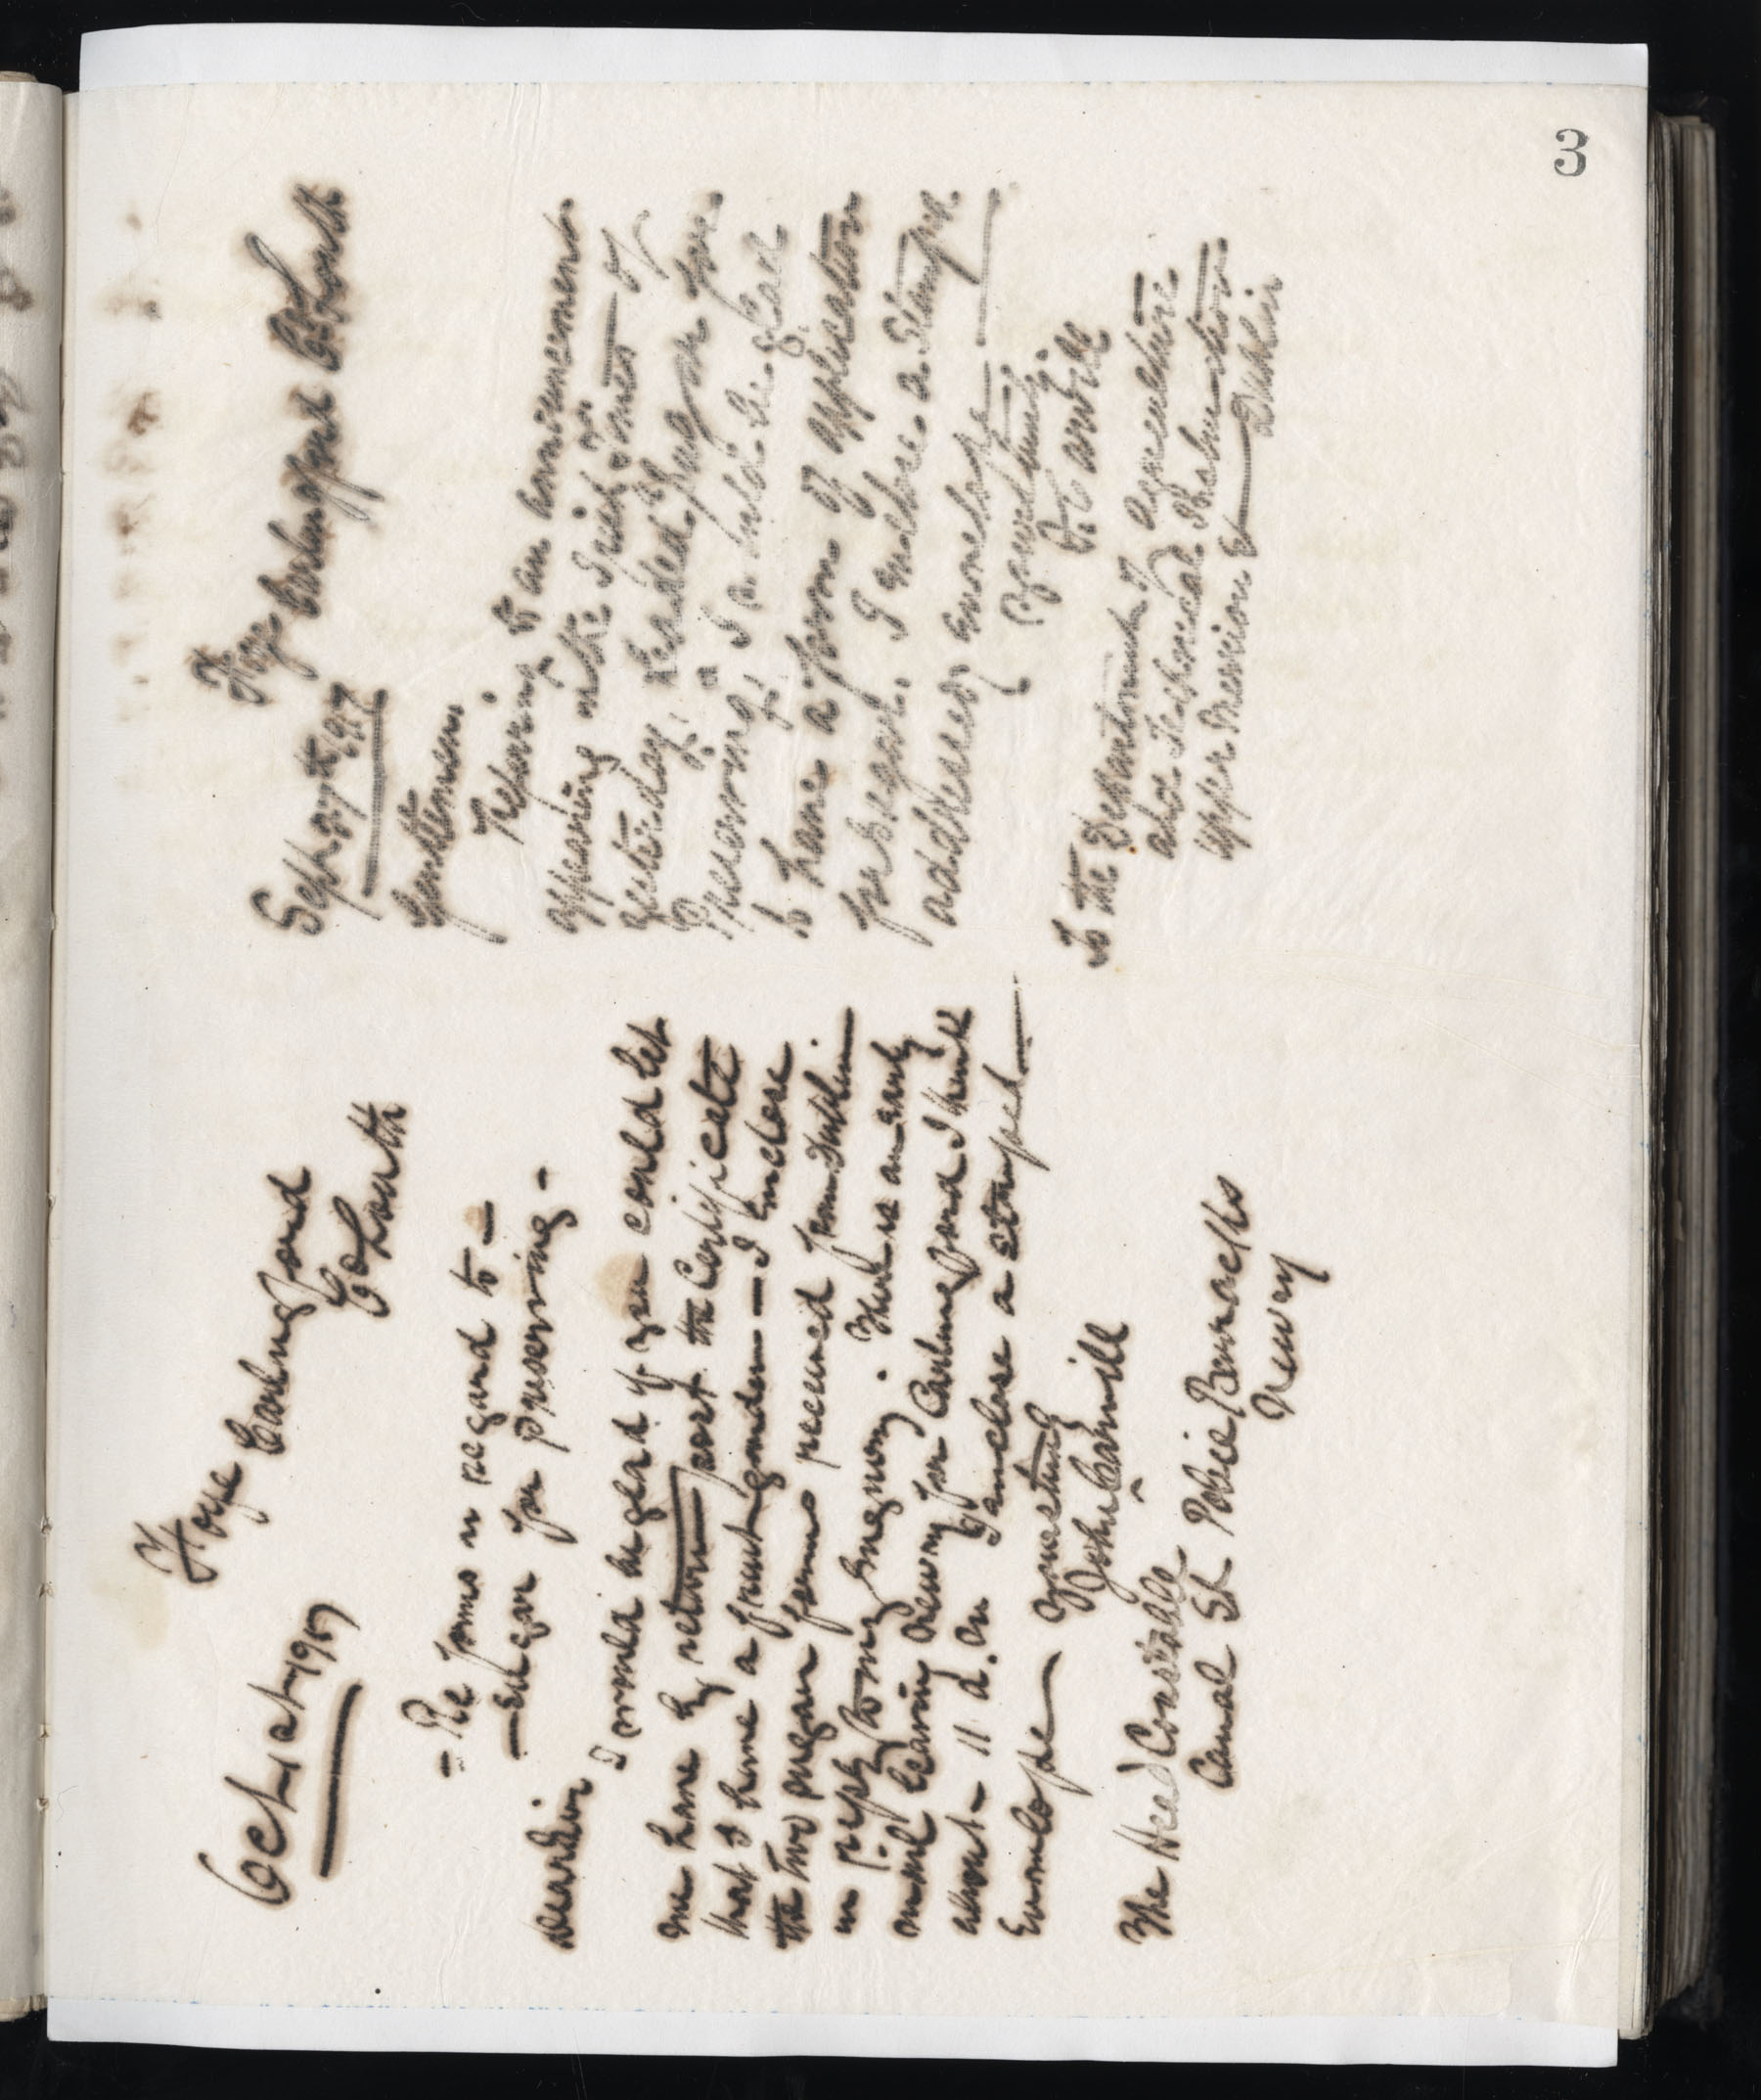 3
Foye Carlingford
Co Louth
Oct 1st 1917
- Re forms in regard to -
- Sugar for preserving -
Dear Sir
I would be glad if you could let
me have by return post the Certificate
that I have a fruit garden - I Enclose
the two sugar forms received from Dublin
in reply to my Enquiry. There is an early
mail leaving Newry for Carlingford I think
about 11 a.m. I enclose a stamped
Envelope Yours truly
John Carvill
The Head Constable
Canal St Police Barracks
Newry
Foye Carlingford Co Louth
Sept 1917
Gentlemen
Referring to an announcement
appearing in the Irish Times of
yesterday headed "Sugar for
Preserving" I should be glad
to have a form of application
for sugar. I enclose a stamped
addressed envelope
Yours truly
Carvill
To the Department of Agriculture
and Technical Instruction
Upper Merrion St
Dublin